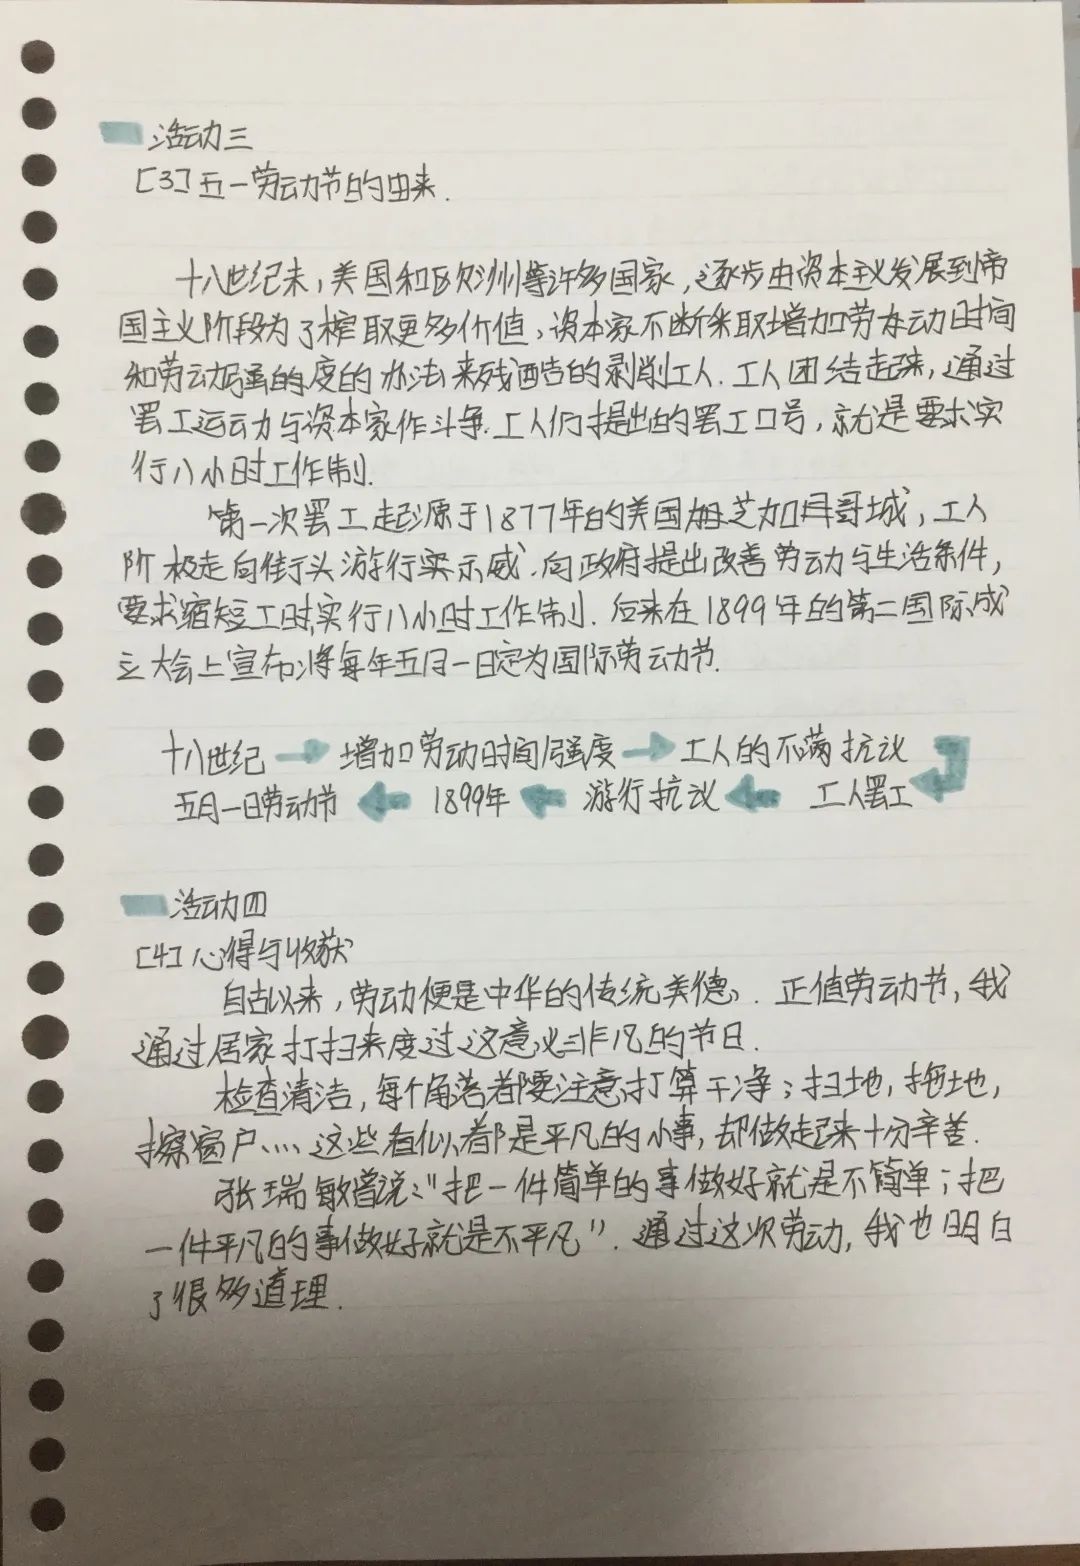 活动三
[3]五一劳动节的由来.
十八世纪末,美国和欧洲等许多国家,逐步由资本主义发展到帝
国主义阶段为了榨取更多价值,资本家不断采取增加劳动时间
和劳动强的度的办法来残酷的剥削工人.工人团结起来,通过
罢工运动与资本家作斗争.工人们提出的罢工口号,就是要求实
行八小时工作制.
第一次罢工起源于1877年的美国 芝加哥城,工人
阶极走向街头游行示威.向政府提出改善劳动与生活条件,
要求缩短工时,实行八小时工作制.后来在1899年的第二国际成
立大会上宣布将每年五月一日定为国际劳动节.
十八世纪→增加劳动时间/强度→工人的不满抗议
五月一日劳动节←1899年←游行抗议←工人罢工
活动四
[4]心得与收获
自古以来,劳动便是中华的传统美德.正值劳动节,我
通过居家打扫来度过这意义非凡的节日.
检查清洁,每个角落都要注意打算干净;扫地,拖地,
擦窗户……这些看似都是平凡的小事,却做起来十分辛苦.
张瑞敏曾说:"把一件简单的事做好就是不简单;把
一件平凡的事做好就是不平凡".通过这次劳动,我也明白
了很多道理.